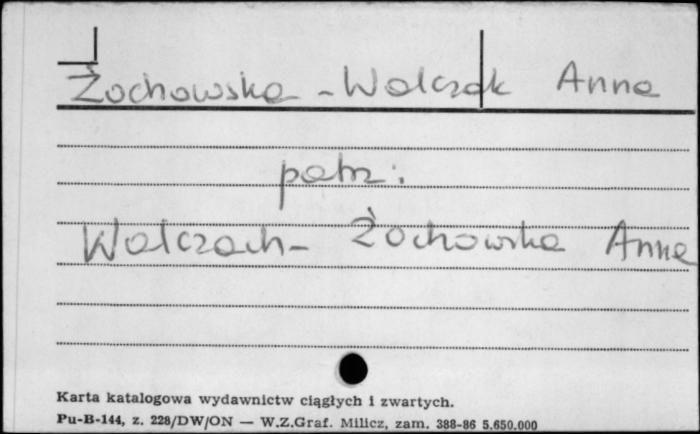 Żochowska - Walczak Anna
patrz:
Walczach - Żochowska Anna
Karta katalogowa wydawnictw ciągłych i zwartych.
Pu-B-144, z. 228/DW/ON — W.Z.Graf. Milicz, zam. 388-86 5.650.000